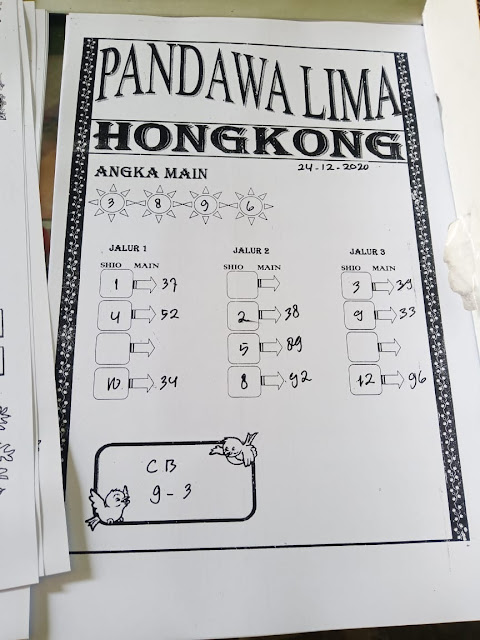 PANDAWA LIMA
HONGKONG
ANGKA MAIN 24-12-2020
3 8 9 6
JALUR 1 JALUR 2 JALUR 3
SHIO MAIN SHIO MAIN SHIO MAIN
1 37 3 39
4 52 2 38 9 33
5 89
10 34 8 92 12 96
CB
9 - 3